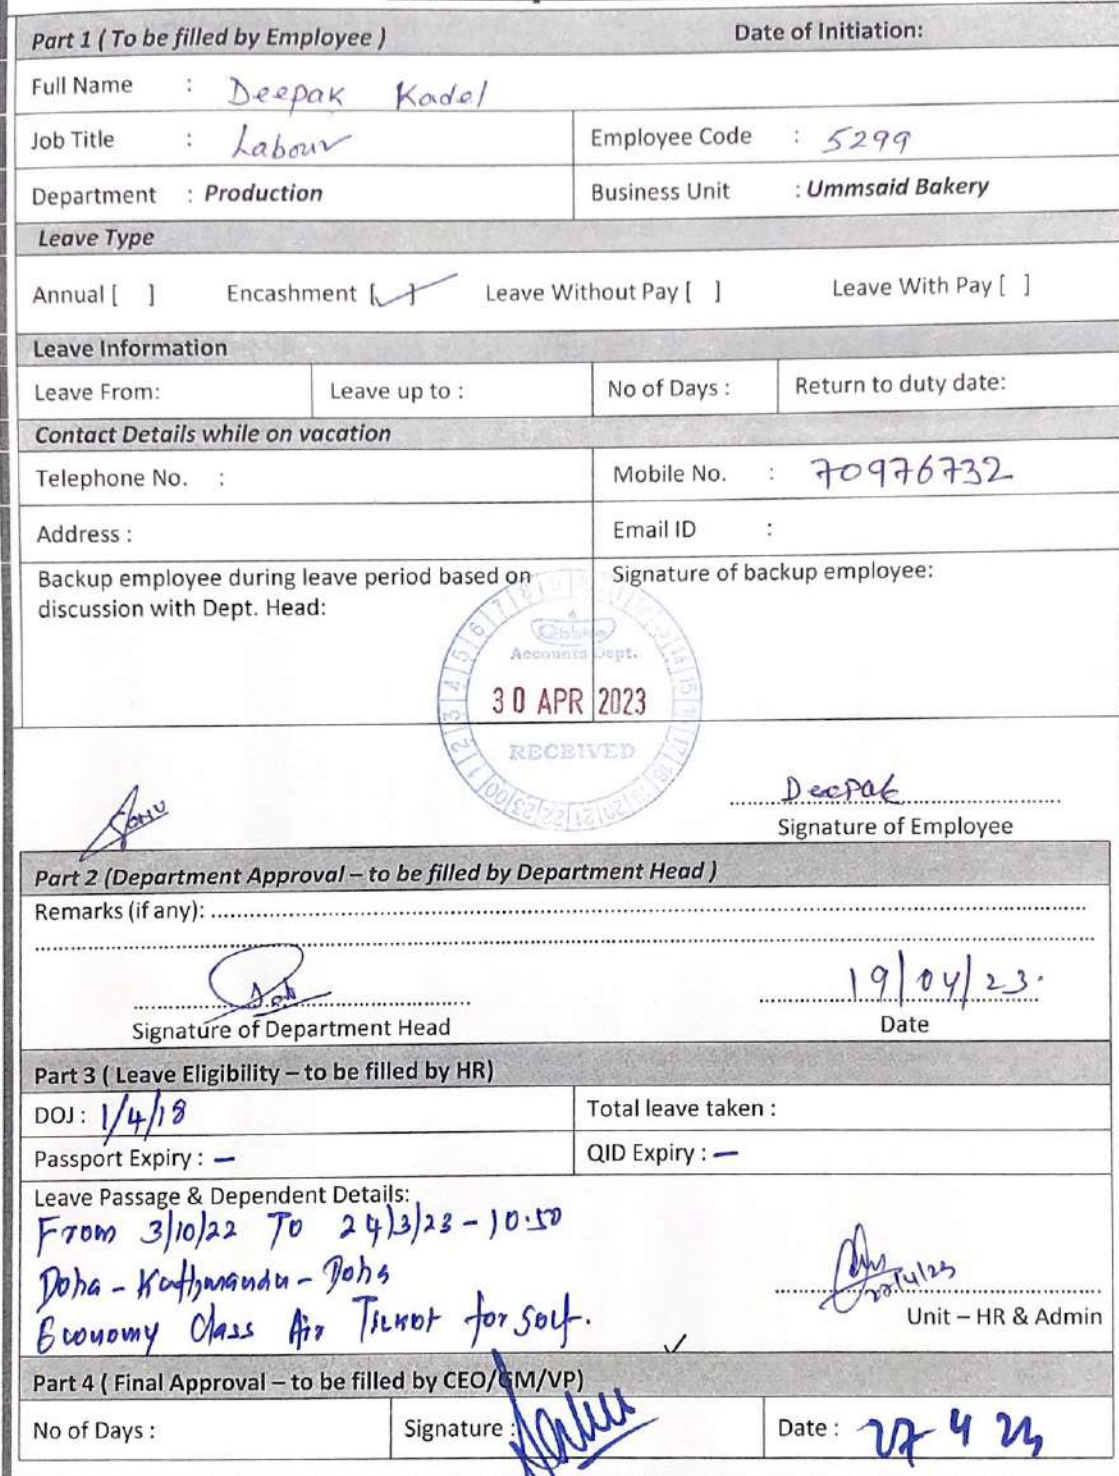 Part 1 ( To be filled by Employee )    Date of Initiation:
Full Name : Deepak Kadel
Job Title : Labour    Employee Code : 5299
Department : Production    Business Unit : Ummsaid Bakery
Leave Type
Annual [ ]    Encashment [✓]    Leave Without Pay [ ]    Leave With Pay [ ]
Leave Information
Leave From:    Leave up to :    No of Days :    Return to duty date:
Contact Details while on vacation
Telephone No. :    Mobile No. : 70976732
Address :    Email ID :
Backup employee during leave period based on    Signature of backup employee:
discussion with Dept. Head:
Accounts Dept.
30 APR 2023
RECEIVED
Deepak
Signature of Employee
Part 2 (Department Approval – to be filled by Department Head )
Remarks (if any):
19/04/23.
Signature of Department Head    Date
Part 3 ( Leave Eligibility – to be filled by HR)
DOJ : 1/4/18    Total leave taken :
Passport Expiry : –    QID Expiry : –
Leave Passage & Dependent Details:
From 3/10/22 To 24/3/23 - 10.50
Doha - Kathmandu - Doha
Economy Class Air Ticket for self.
Unit – HR & Admin
Part 4 ( Final Approval – to be filled by CEO/GM/VP)
No of Days :    Signature :    Date : 27 4 23